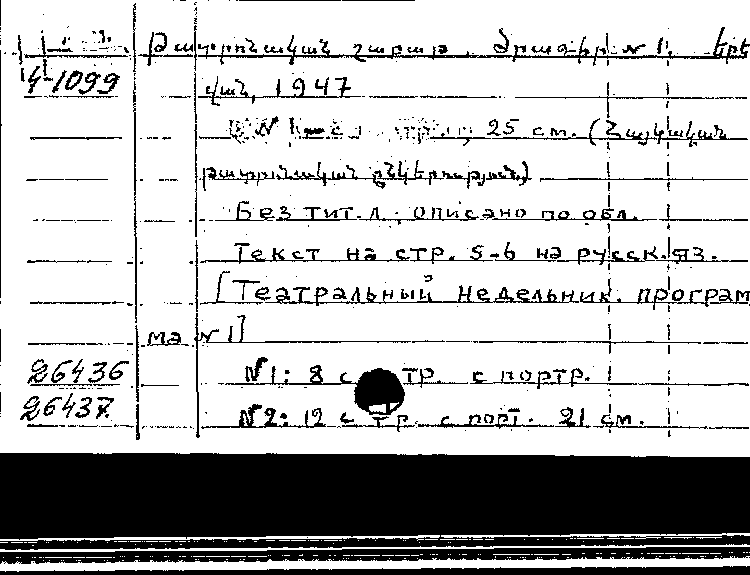 Թատրոնական շաբաթ. Ծրագիր № 1. Երե
4-1099 վան, 1947
25 см. (Հայկական
թատրոնական ընկերություն)
Без тит. л., описано по обл.
Текст на стр. 5-6 на русск. яз.
[Театральный недельник. програм
ма № 1]
26436 №1: 8 с тр. с портр.
26437. №2: 12 с тр. с порт. 21 см.